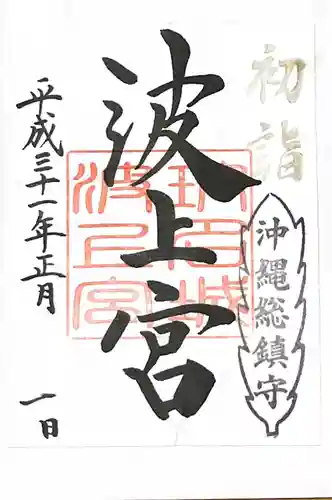 初詣
沖縄総鎮守
波上宮
平成三十一年正月
一日